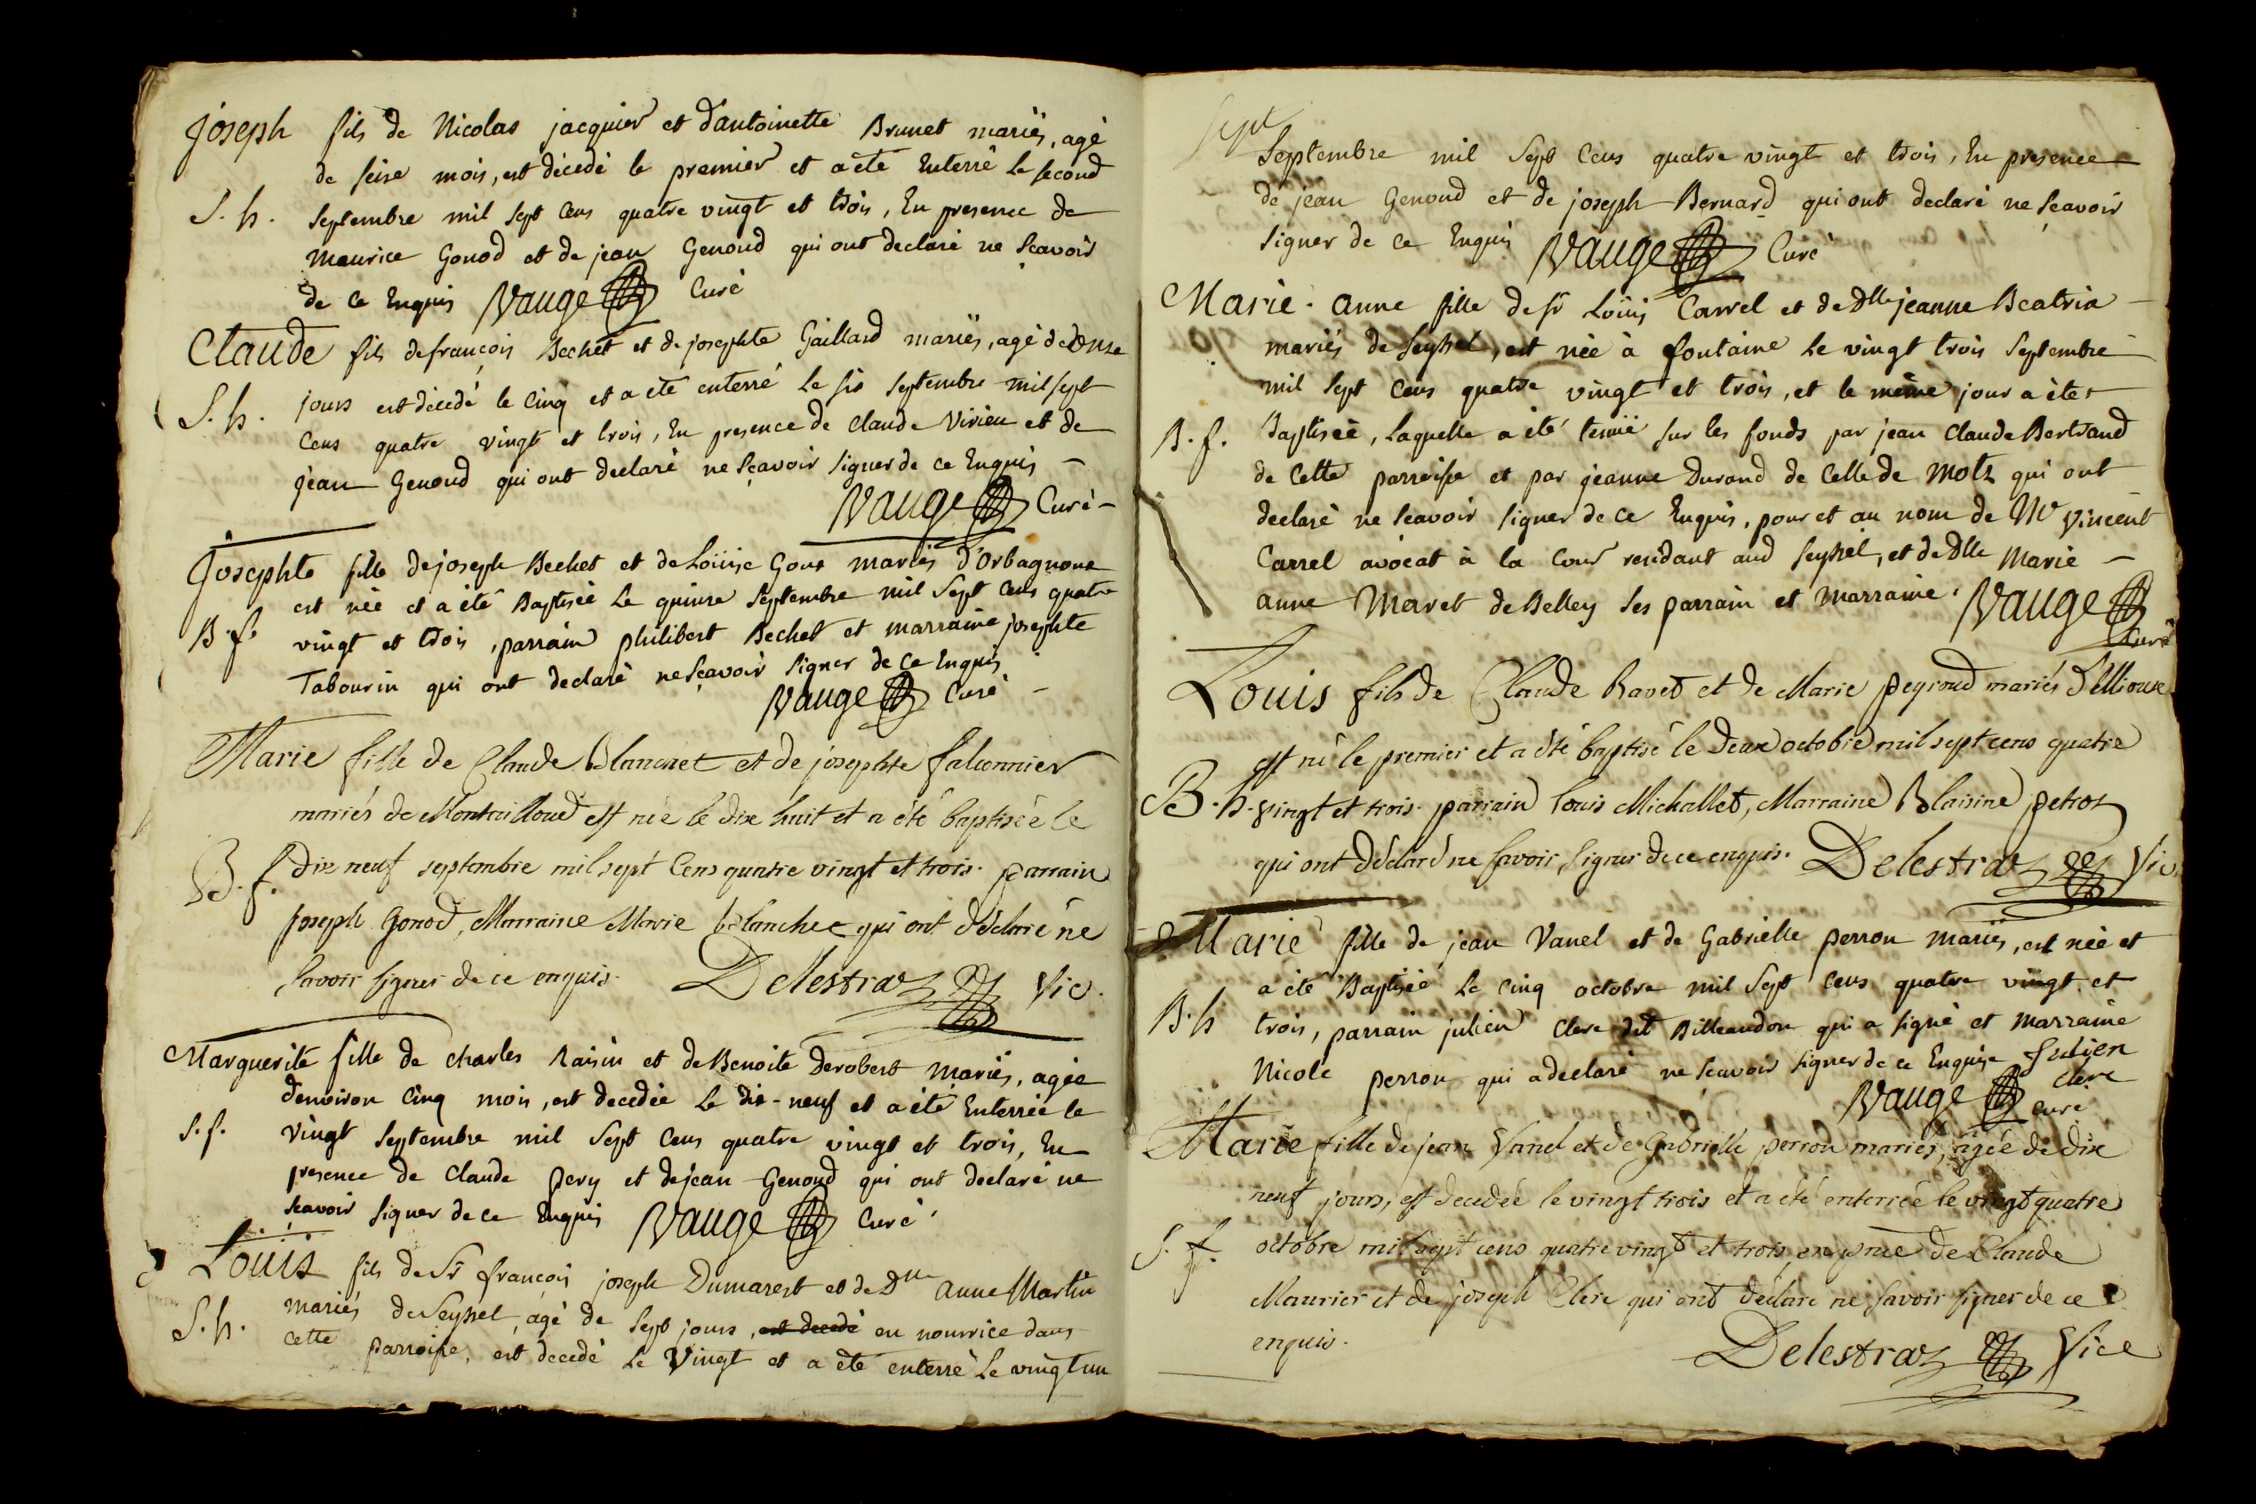 Joseph fils de Nicolas jacquier et d'antoinette Brunet mariés, agé
de seise mois, est décedé le premier et a été Enterré Le second
S. h. Septembre mil sept Cens quatre vingt et trois, En presence de
Maurice Gonod et de jean Genoud qui ont declaré ne Sçavoir
de Ce Enquis Vauge Curé
Claude fils de françois Bechet et de josephte Gaillard mariés, agé de onse
S. h. jours est décedé le Cinq et a été enterré Le six Septembre mil sept
Cens quatre vingt et trois, En presence de Claude Virieu et de
jean Genoud qui ont declaré ne Sçavoir Signer de Ce Enquis
Vauge Curé
Josephte fille de joseph Bechet et de Loüise Goux mariés d'Orbagnoux
est née et a été Baptisée Le quinze Septembre mil Sept Cens quatre
B. f. vingt et trois, parrain philibert Bechet et marraine josephte
Tabourin qui ont declaré ne Sçavoir Signer de Ce Enquis
Vauge Curé
Marie fille de Claude Blanchet et de josephte falconnier
mariés de Montailloud est née le dix huit et a été baptisée le
B. f. dix neuf septembre mil sept Cens quatre vingt et trois. parrain
joseph Gonod, Marraine Marie blanchet qui ont déclaré ne
Savoir signer de ce enquis. Delestraz Vic.
Marguerite fille de Charles Raisin et de Benoite Derobert mariés, agée
d'environ Cinq mois, est decedée Le dix-neuf et a été Enterrée le
S. f. Vingt Septembre mil Sept Cens quatre vingt et trois, En
presence de Claude pery et de jean Genoud qui ont declaré ne
Sçavoir Signer de Ce Enquis Vauge Curé
Louis fils de Sr françois joseph Dumarest et de Dlle Anne Martin
mariés de Seyssel, agé de Sept jours, est decedé en nourrice dans
S. h. Cette parroisse, est decedé Le Vingt et a été enterré Le vingt un
Sept
Septembre mil Sept Cens quatre vingt et trois, En presence
de jean Genoud et de joseph Bernard qui ont declaré ne Sçavoir
Signer de Ce Enquis Vauge Curé
Marie-anne fille de Sr Loüis Carrel et de Dlle jeanne Beatrix
mariés de Seyssel, est née à fontaine Le vingt trois Septembre
mil Sept Cens quatre vingt et trois, et le même jour a été
B. f. Baptisée, Laquelle a été tenüe sur les fonds par jean Claude Bertrand
de Cette parroisse et par jeanne Durand de Celle de Motz qui ont
declaré ne Sçavoir Signer de Ce Enquis, pour et au nom de Me Vincent
Carrel avocat à la Cour residant aud Seyssel, et de Dlle Marie
anne Maret de Belley Ses parrain et Marraine. Vauge
Curé
Louis fils de Claude Ravet et de Marie peyroud mariés d'Illioux
est né le premier et a été baptisé le Deux octobre mil sept cens quatre
B. h. vingt et trois. parrain Louis Michallet, Marraine Blaisine
qui ont déclaré ne Savoir signer de ce enquis. Delestraz Vic.
Marie fille de jean Vanel et de Gabrielle perron mariés, est née et
a été Baptisée Le Cinq octobre mil Sept Cens quatre vingt et
B. h trois, parrain julien Clerc dit Billeaudon qui a signé et Marraine
Nicole perron qui a declaré ne Sçavoir signer de ce Enquise Julien
Clerc
Vauge Curé
Marie fille de jean Vanel et de Gabrielle perron mariés, agée de dix
neuf jours, est decedée le vingt trois et a été enterrée le vingt quatre
S. f. octobre mil sept cens quatre vingt et trois en pnce de Claude
Maurier et de joseph Clerc qui ont déclaré ne Savoir signer de ce
enquis.
Delestraz Vice